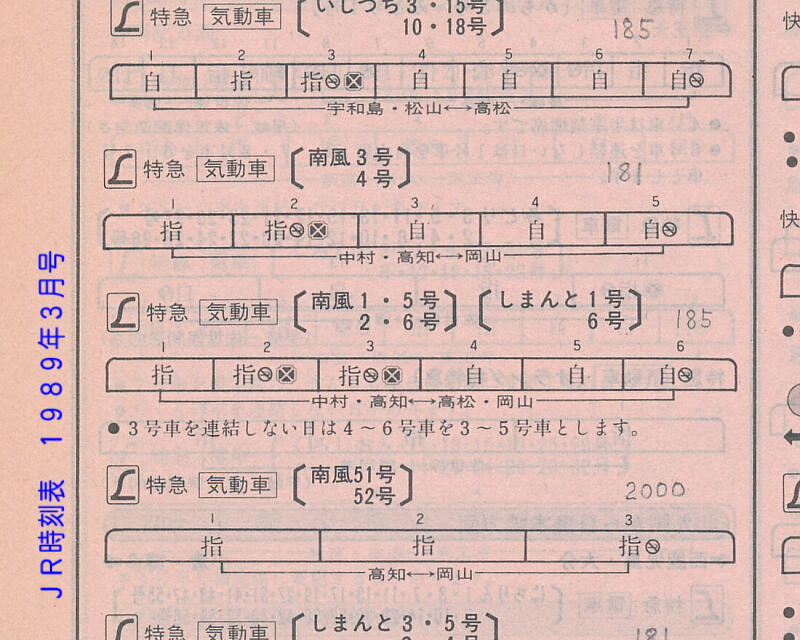 特急 気動車 いしづち3・15号
10・18号
185
1 2 3 4 5 6 7
自 指 指 自 自 自 自
宇和島・松山↔高松
特急 気動車 南風3号
4号
181
1 2 3 4 5
指 指 自 自 自
中村・高知↔岡山
特急 気動車 南風1・5号 しまんと1号
2・6号 6号
185
1 2 3 4 5 6
指 指 指 自 自 自
中村・高知↔高松・岡山
●3号車を連結しない日は4~6号車を3~5号車とします。
特急 気動車 南風51号
52号
2000
1 2 3
指 指 指
高知↔岡山
特急 気動車 しまんと3・5号
181
JR時刻表 1989年3月号
快
快